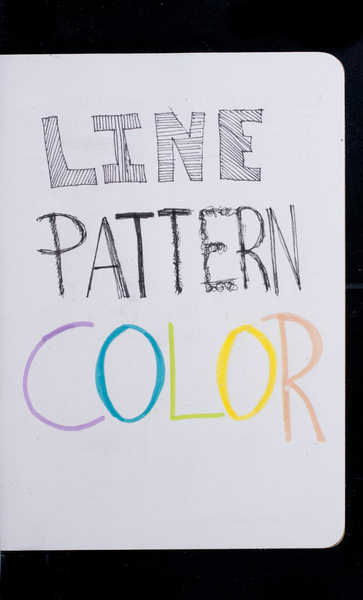 LINE
PATTERN
COLOR